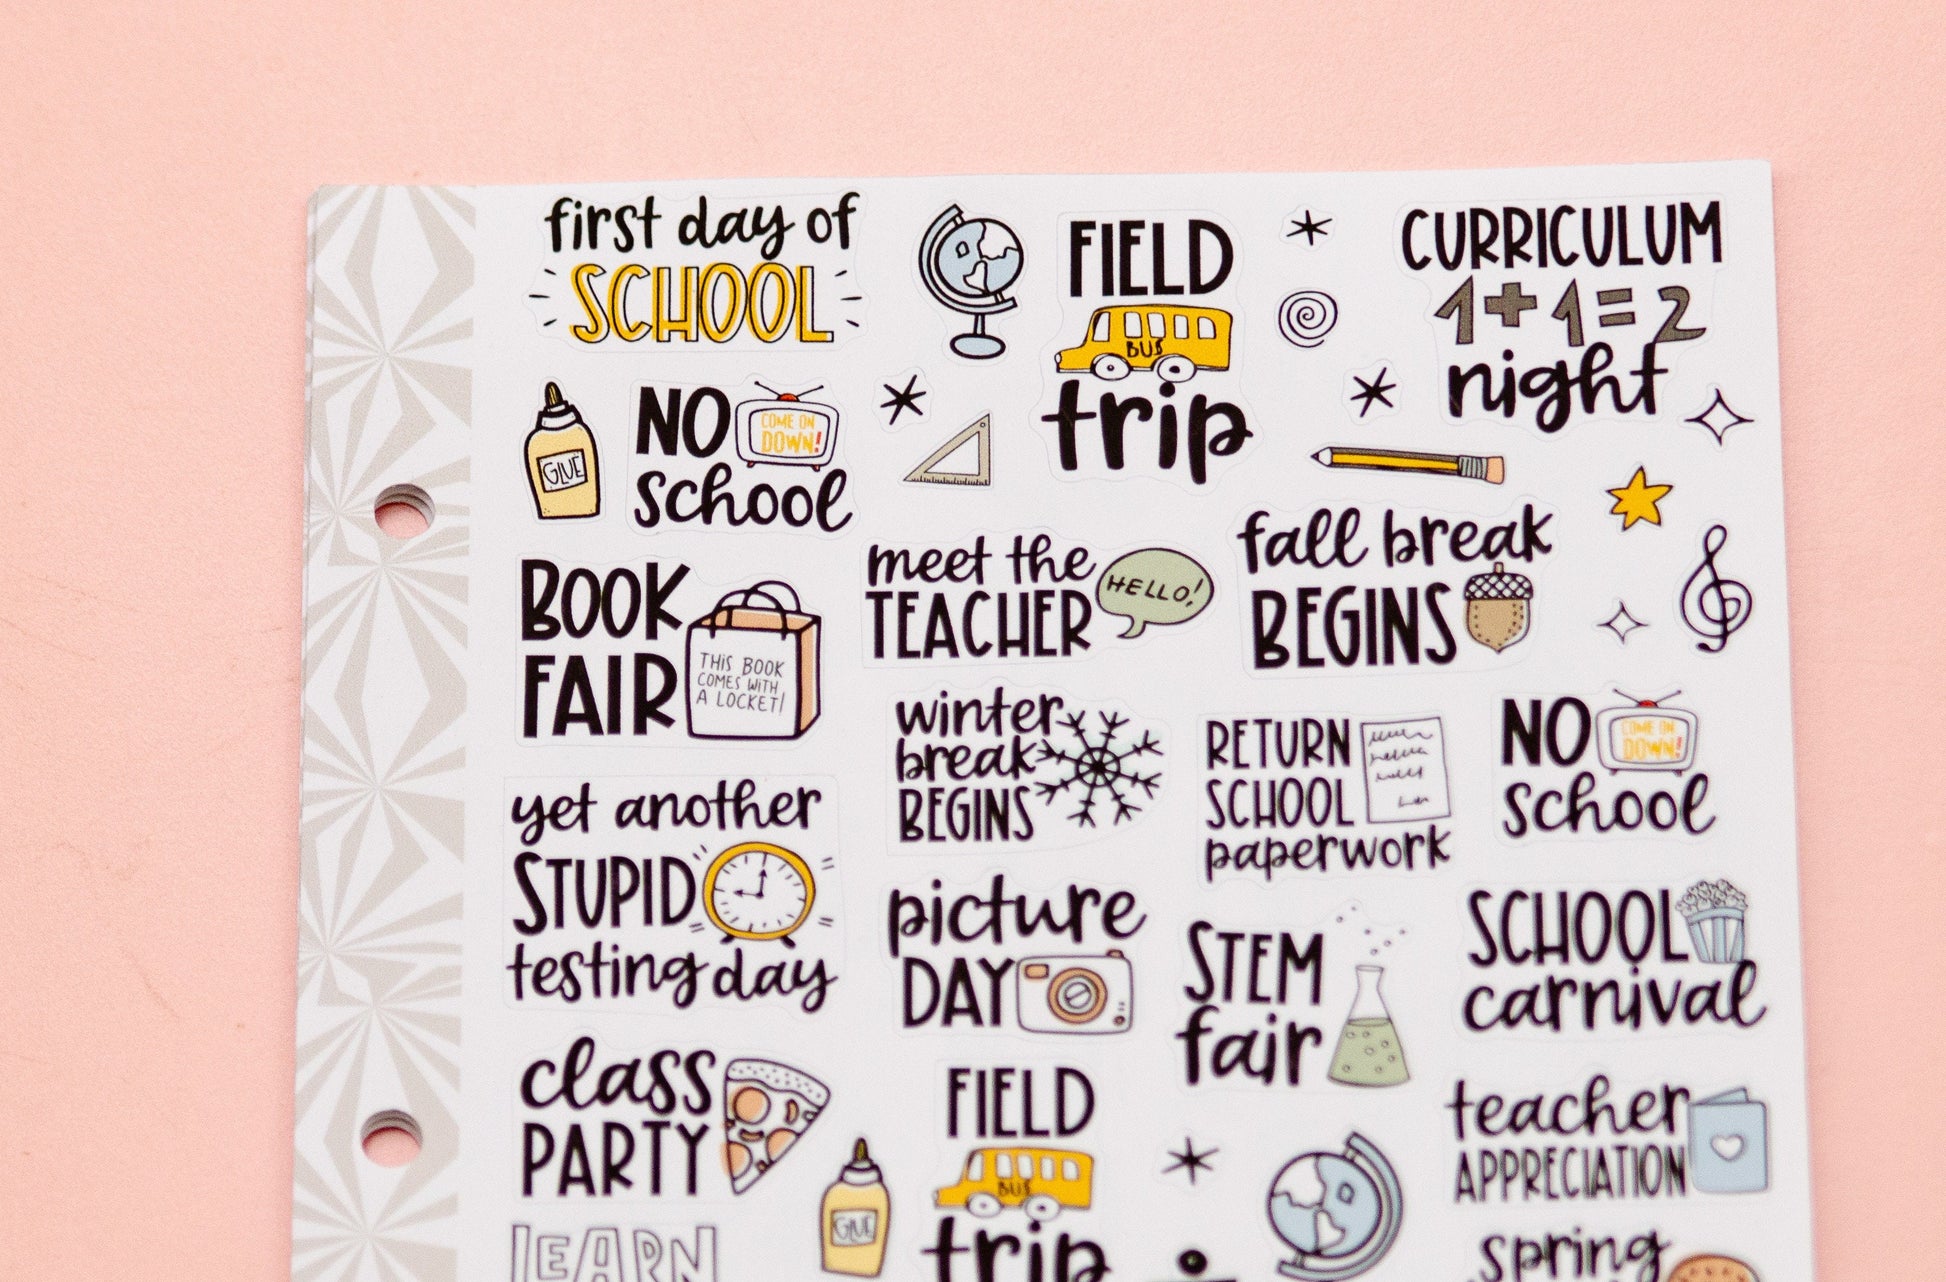 first day of
SCHOOL
FIELD
BUS
trip
CURRICULUM
1+1=2
night
GLUE
NO
COME ON
DOWN!
school
BOOK
FAIR
THIS BOOK
COMES WITH
A LOCKET!
meet the
TEACHER
HELLO!
fall break
BEGINS
winter
break
BEGINS
RETURN
SCHOOL
paperwork
NO
COME ON
DOWN!
school
yet another
STUPID
testing day
picture
DAY
STEM
fair
SCHOOL
carnival
class
PARTY
GLUE
FIELD
BUS
trip
teacher
APPRECIATION
LEARN
spring